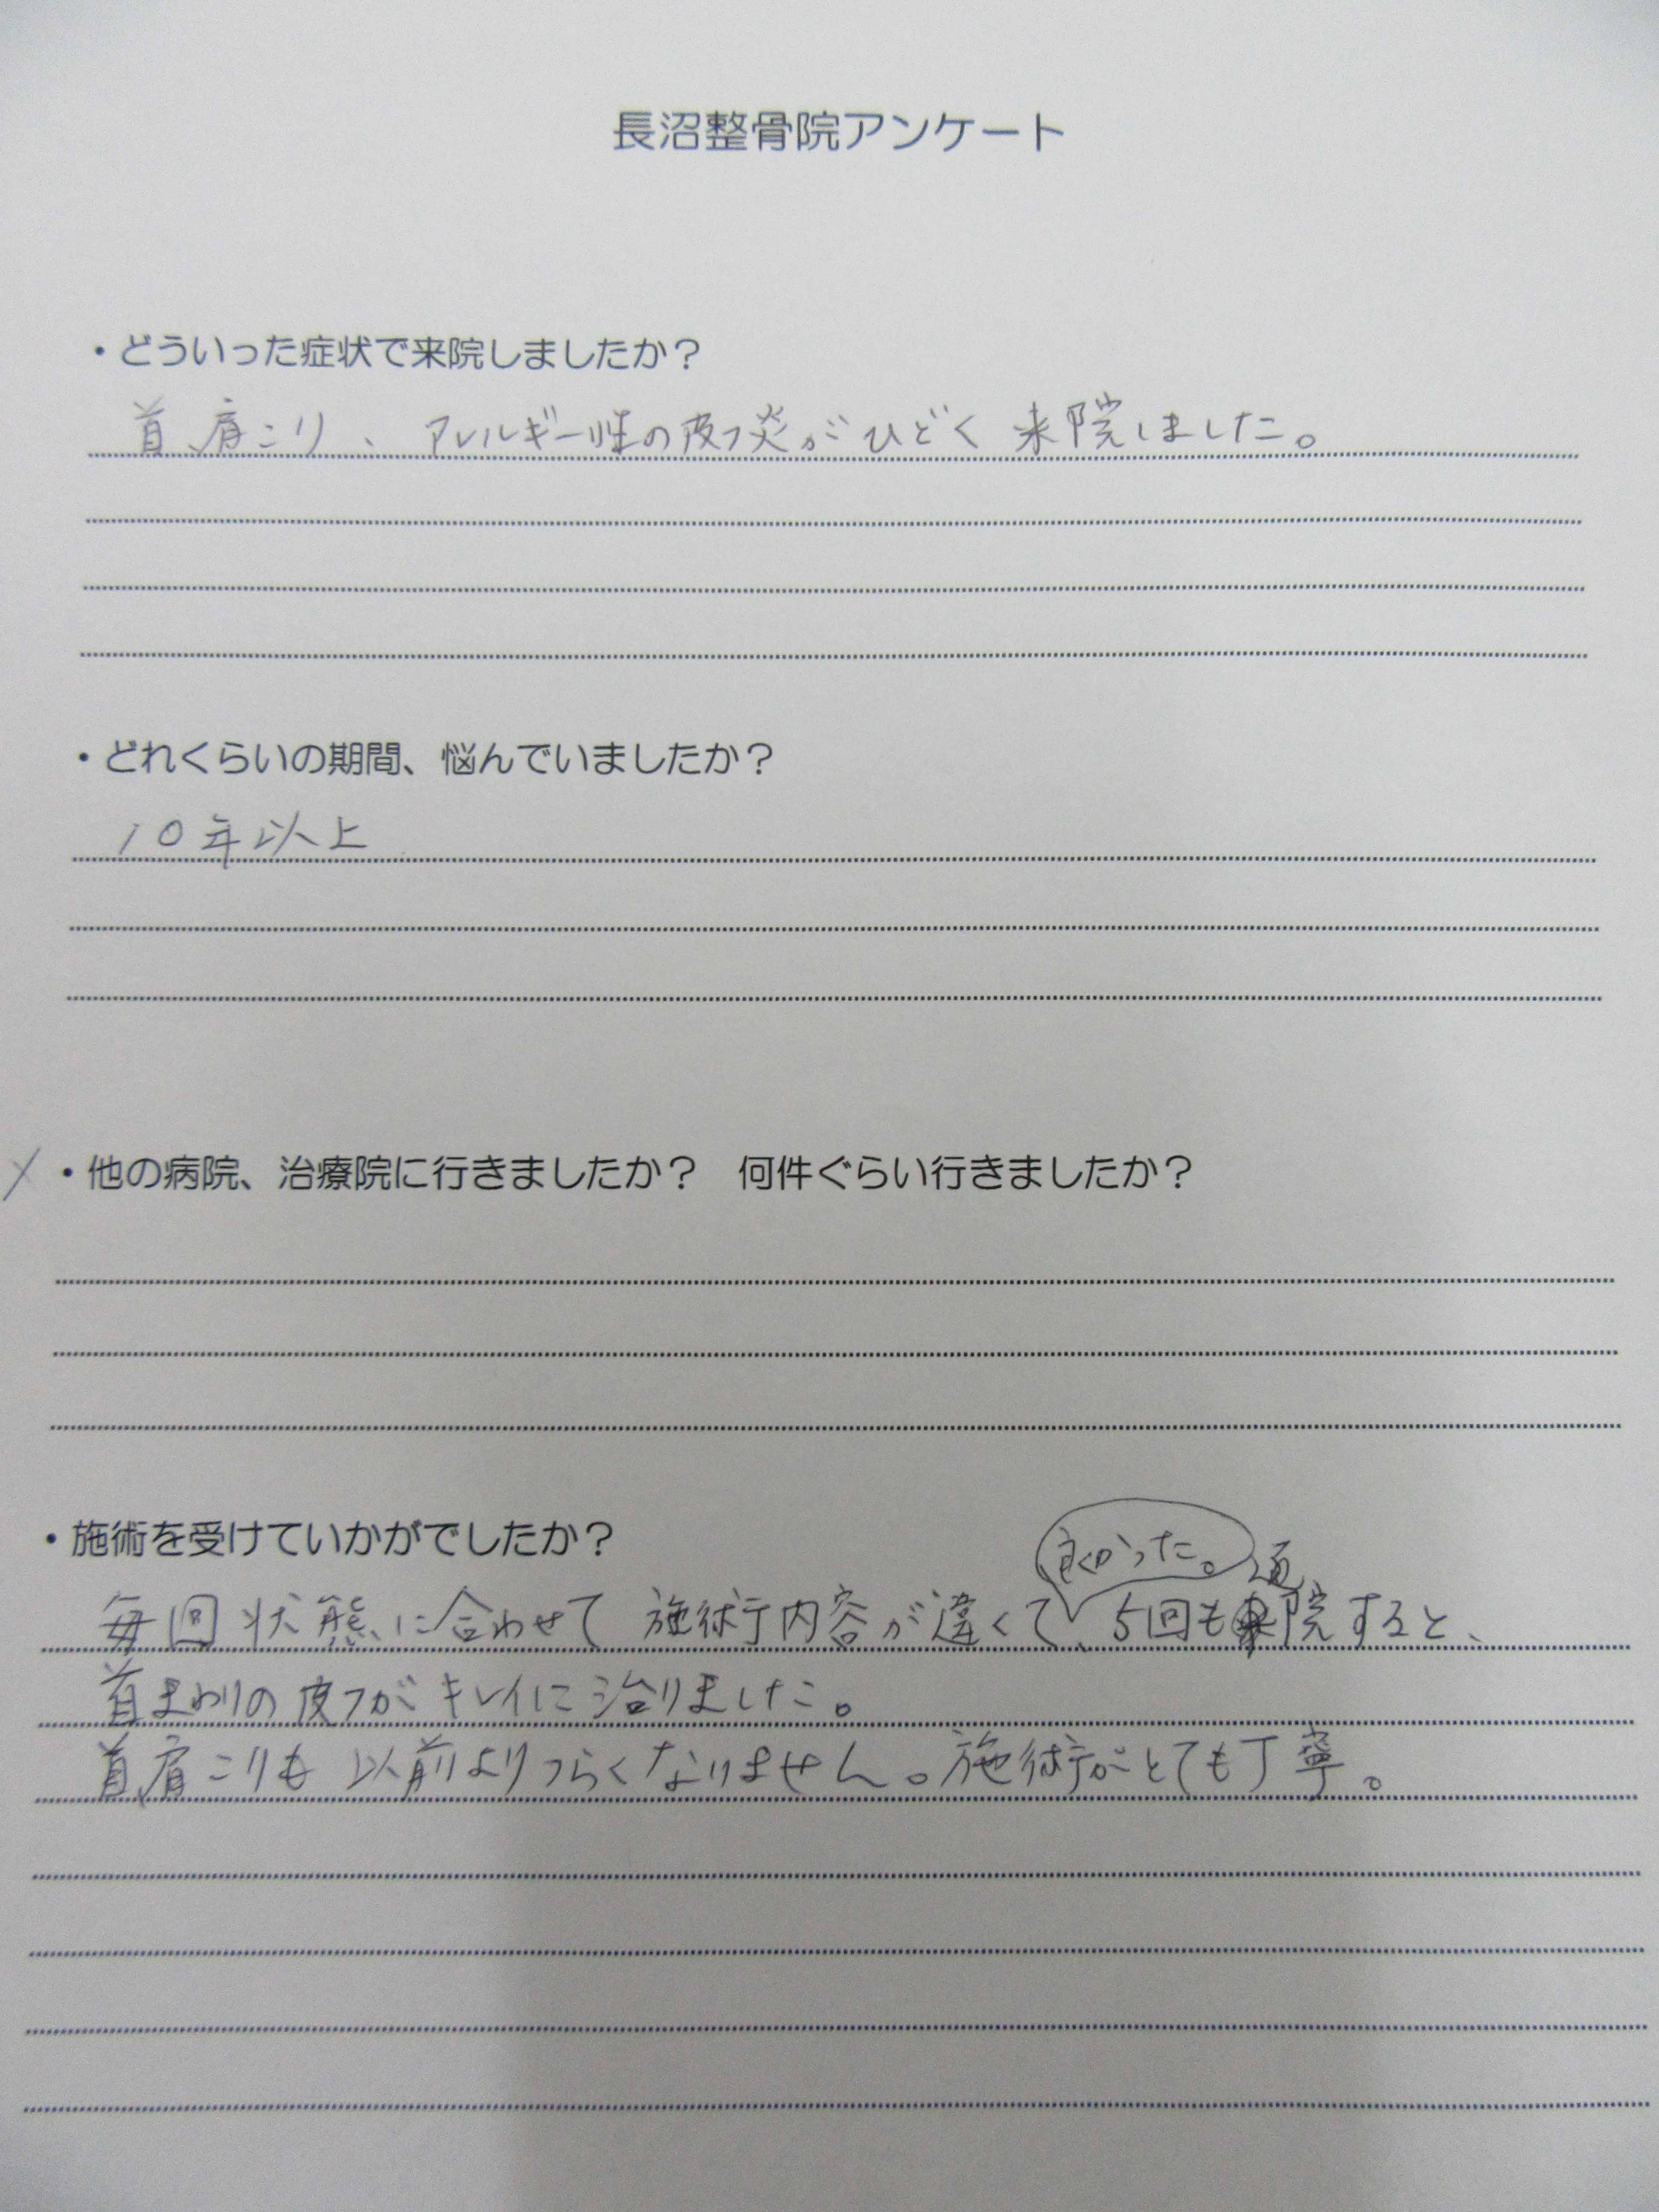 長沼整骨院アンケート
・どういった症状で来院しましたか？
首、肩こり、アレルギー性の皮フ炎がひどく来院しました。
・どれくらいの期間、悩んでいましたか？
10年以上
・他の病院、治療院に行きましたか？　何件ぐらい行きましたか？
・施術を受けていかがでしたか？
毎回状態に合わせて施術内容が違くて良かった。5回も通院すると、
首まわりの皮フがキレイに治りました。
首、肩こりも以前よりつらくなりません。施術がとても丁寧。